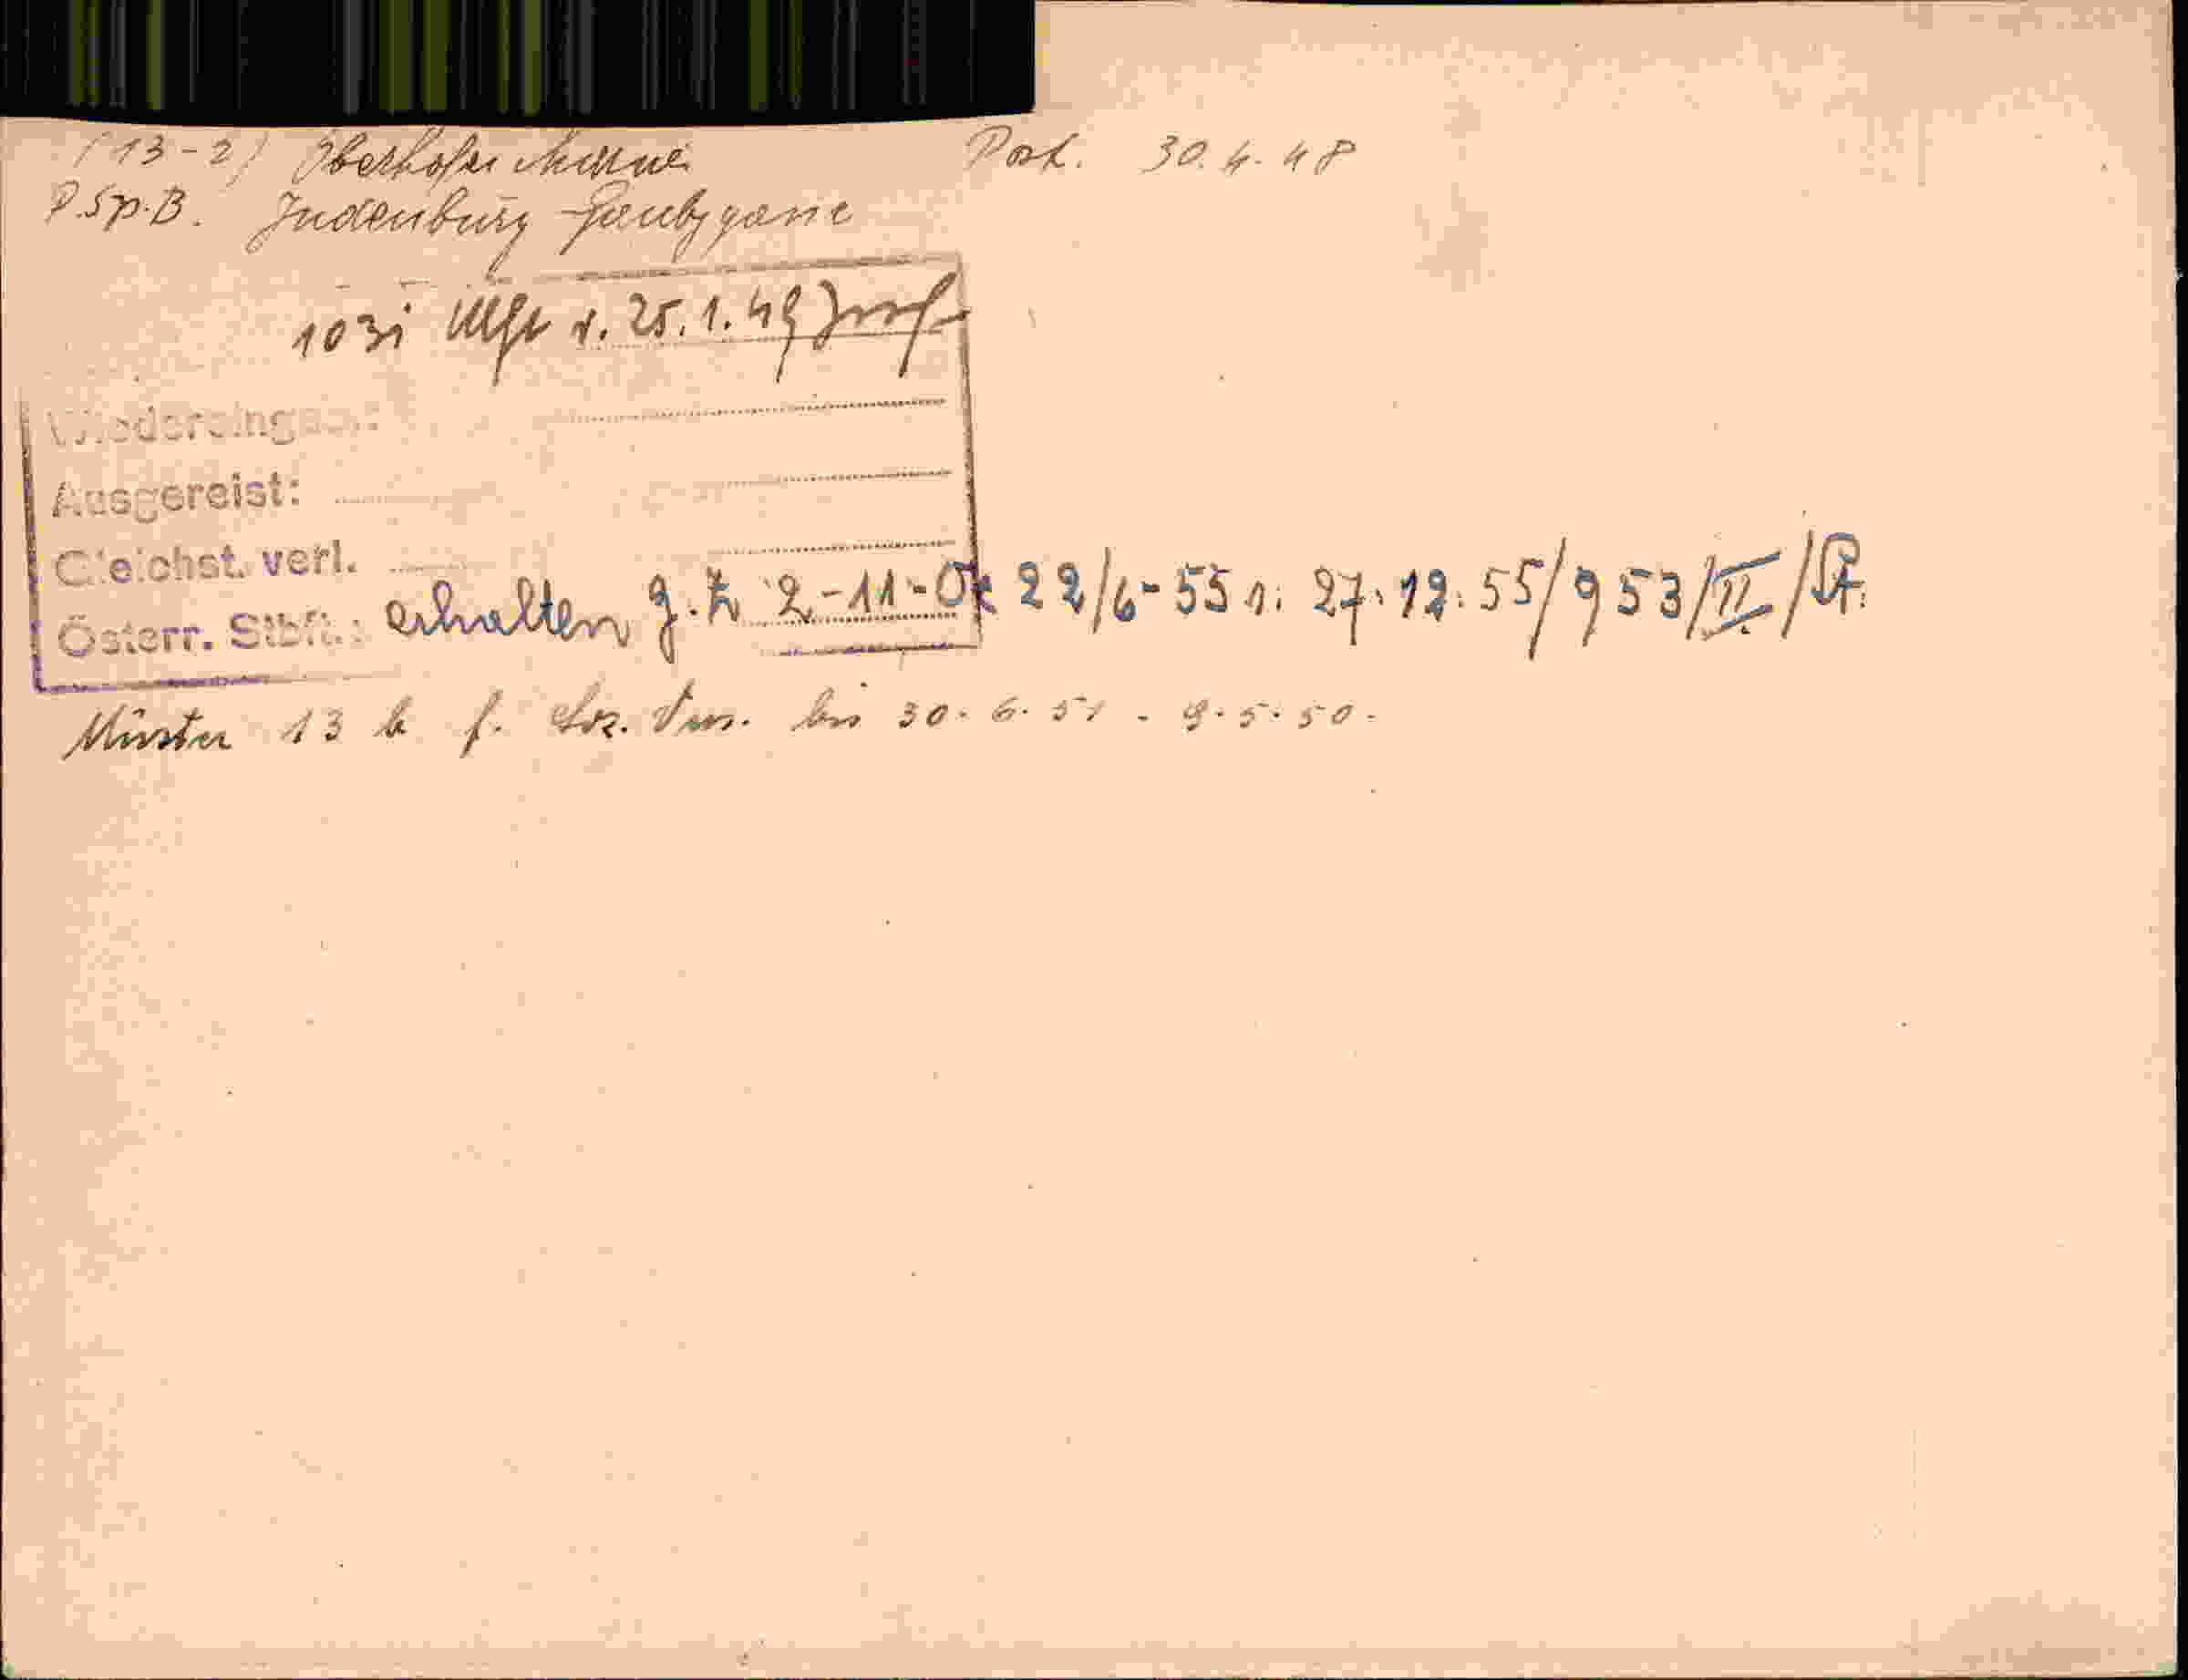 (13-2) Oberhofer Minna Post. 30.4.48
P.Sp.B. Judenburg
103i v. 25.1.49
Wiedereingeb.:
Ausgereist:
Gleichst. verl.
Österr. Stbft.: erhalten g. Z. 2-11-Ok 22/6-55 v. 27.12.55/953/II/St.
Münster 13 b f. bis 30.6.51 - 9.5.50.-